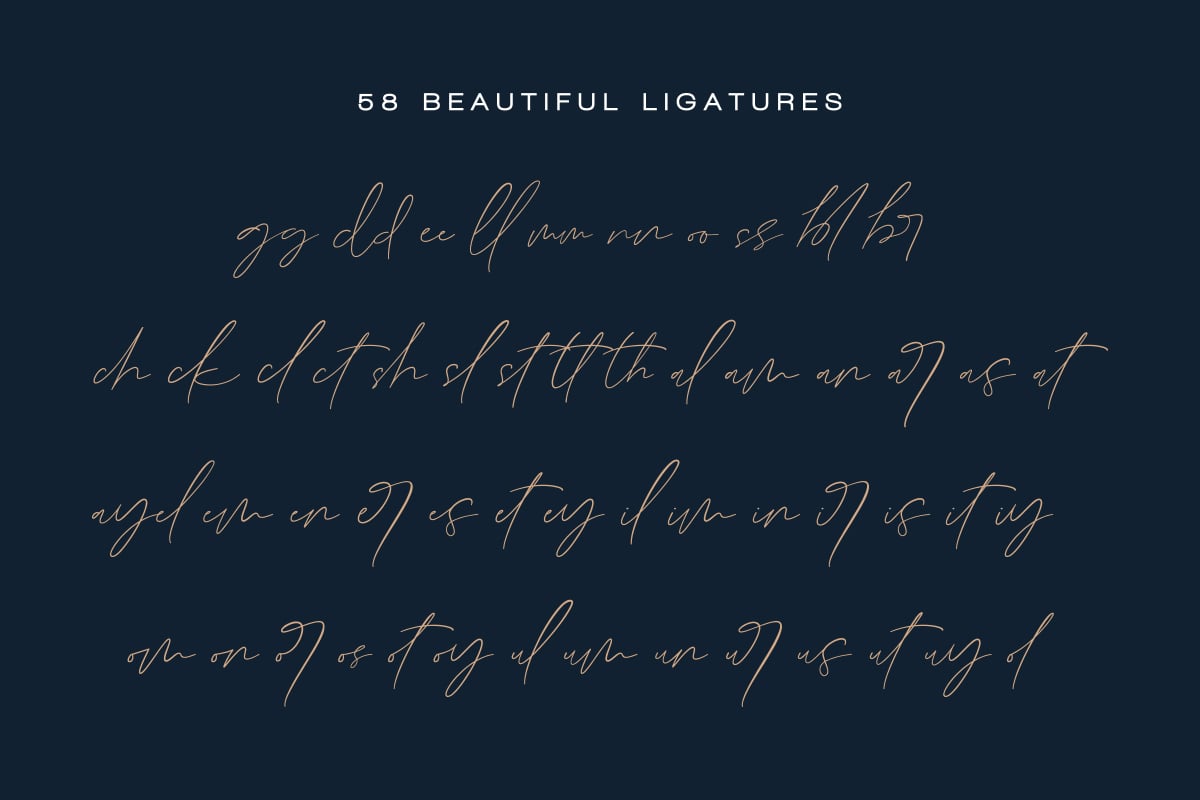 58 BEAUTIFUL LIGATURES
gg dd ee ll mm nn oo ss bl br
ch ck cl ct sh sl st tl th al am an ar as at
ay el em en er es et ey il im in ir is it iy
om on or os ot oy ul um un ur us ut uy ol